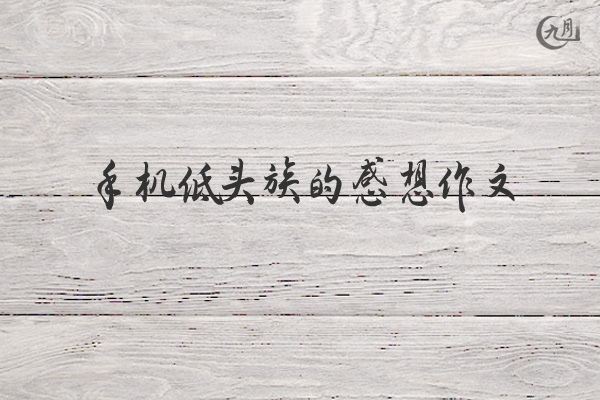 九月
手机低头族的感想作文